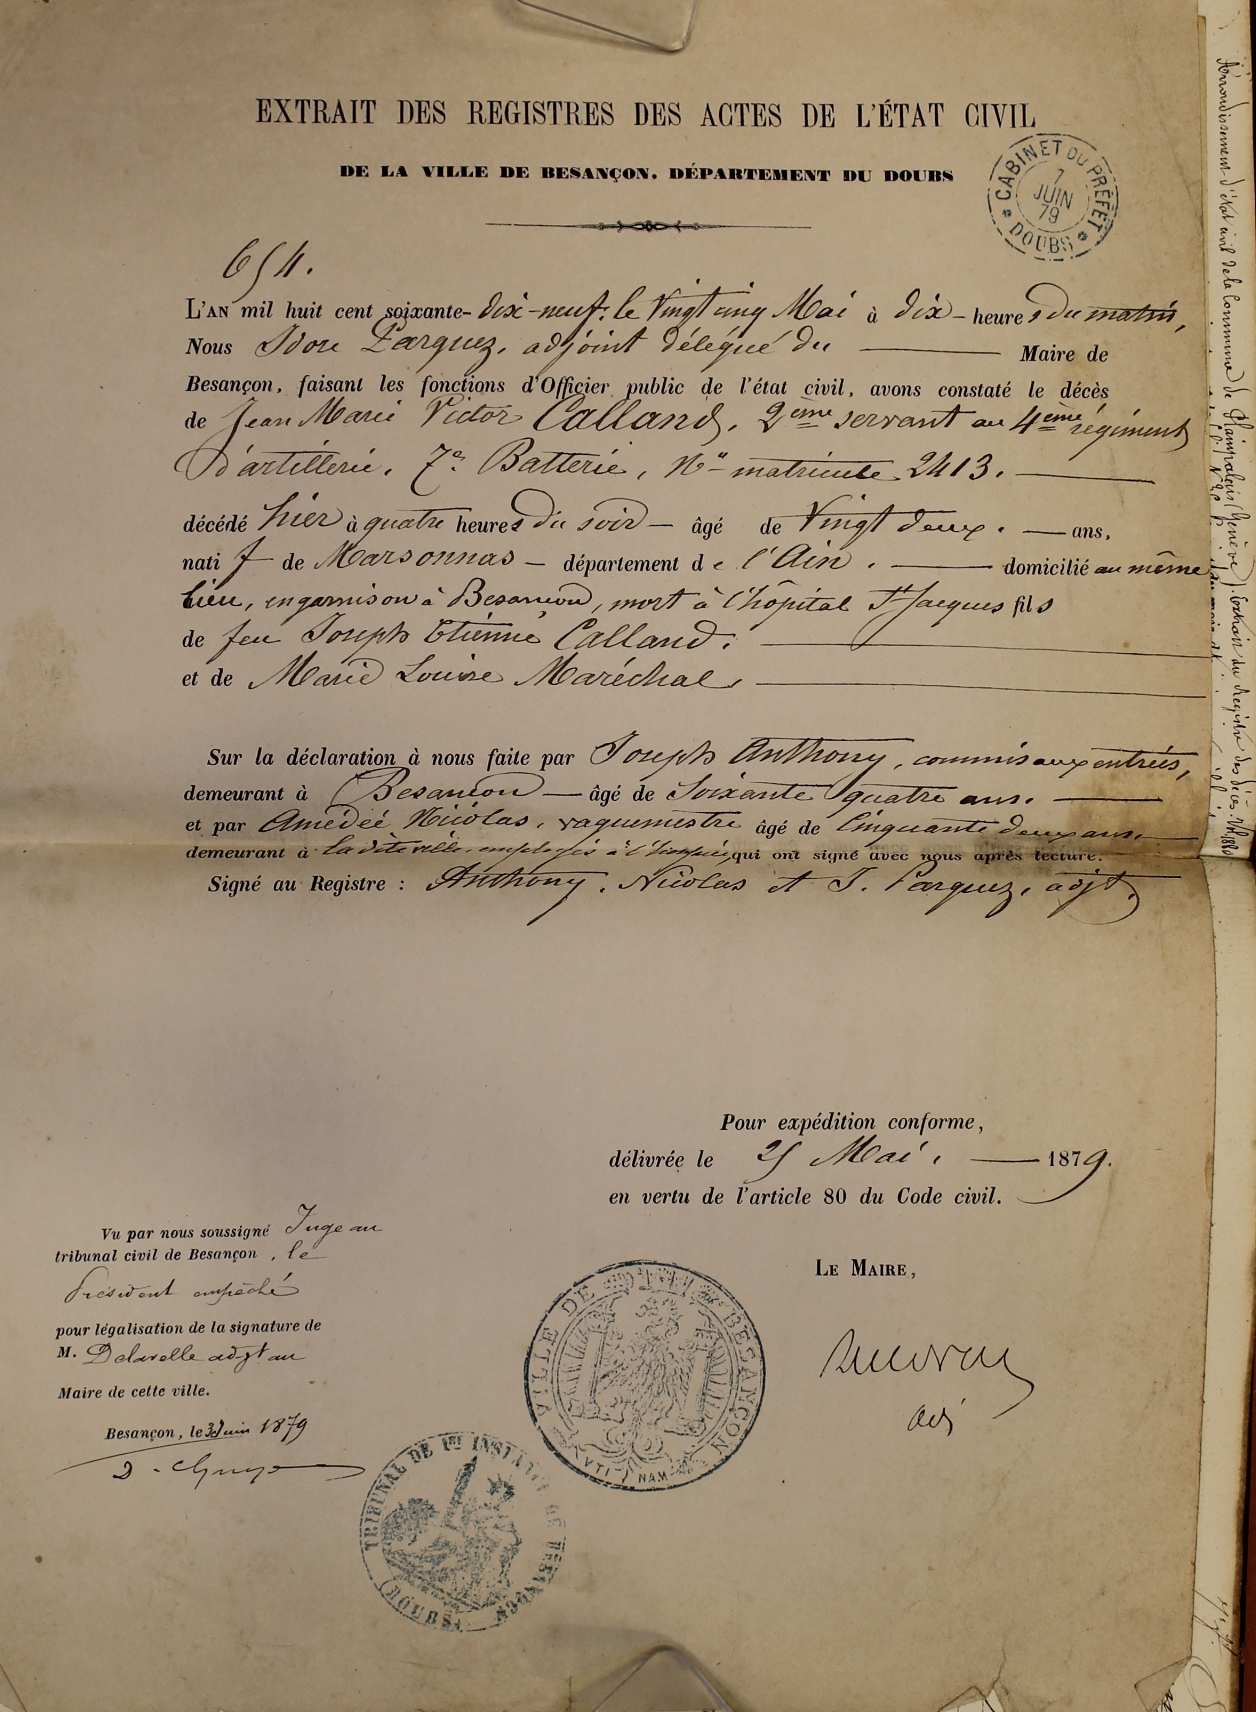 EXTRAIT DES REGISTRES DES ACTES DE L'ÉTAT CIVIL
DE LA VILLE DE BESANÇON. DÉPARTEMENT DU DOUBS
CABINET DU PRÉFET
7
JUIN
79
* DOUBS *
654.
L'AN mil huit cent soixante-dix-neuf, le Vingt cinq Mai à dix - heures du matin,
Nous Isore Parguez, adjoint délégué du Maire de
Besançon, faisant les fonctions d'Officier public de l'état civil, avons constaté le décès
de Jean Marie Victor Calland, 2ème servant au 4ème régiment
d'artillerie, 7e Batterie, No matricule 2413.
décédé hier à quatre heures du soir - âgé de Vingt deux. ans,
natif de Marsonnas - département de l'Ain. domicilié au même
lieu, en garnison à Besançon, mort à l'hôpital St Jacques fils
de feu Joseph Etienne Calland,
et de Marie Louise Maréchal,
Sur la déclaration à nous faite par Joseph Anthony, commis aux entrées,
demeurant à Besançon - âgé de Soixante quatre ans.
et par Amédée Nicolas, vaguemestre âgé de Cinquante deux ans
demeurant à la dite ville, employés à l'hospice, qui ont signé avec nous après lecture.
Signé au Registre : Anthony, Nicolas et I. Parguez, adjt,
Pour expédition conforme,
délivrée le 25 Mai, 1879.
en vertu de l'article 80 du Code civil.
LE MAIRE,
adj
Vu par nous soussigné Juge au
tribunal civil de Besançon, le
Président empêché
pour légalisation de la signature de
M. Delavelle adjt au
Maire de cette ville.
Besançon, le 3 Juin 1879
VILLE DE BESANÇON
VTINAM
TRIBUNAL DE 1re INSTANCE DE BESANÇON
(DOUBS)